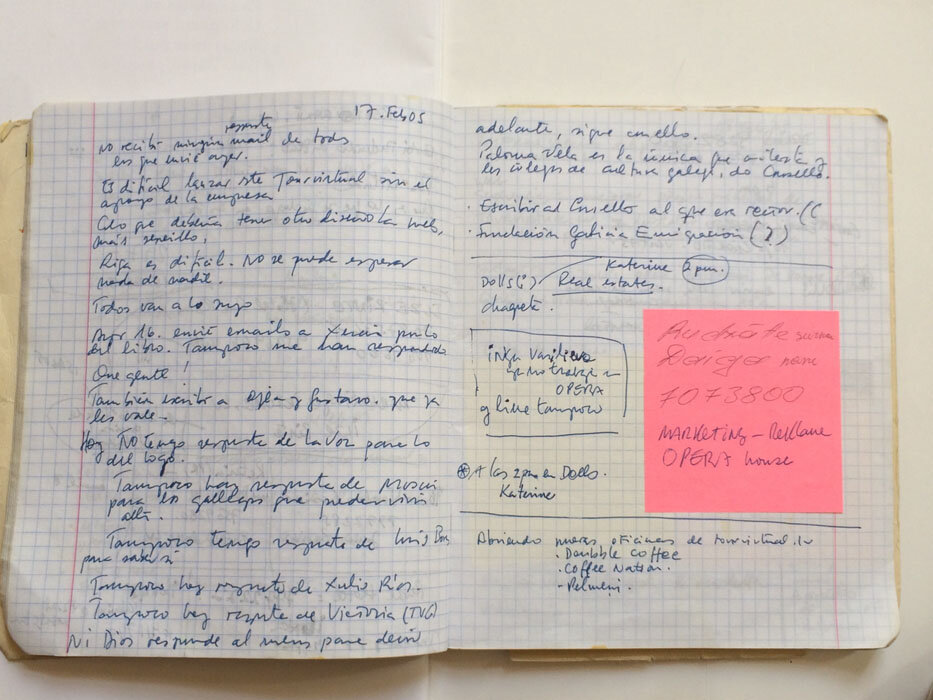 17. Feb 05
respuesta
No recibí ningún mail de todos
los que envié ayer.
Es difícil lanzar este Tourvirtual sin el
apoyo de la empresa
Creo que debería tener otro diseño la web,
más sencillo.
Riga es difícil. No se puede esperar
nada de nadie.
Todos van a lo suyo
Ayer 16. envié emails a Xerais por lo
del libro. Tampoco me han respondido
Que gente!
También escribí a Olga y Gustavo. que ya
les vale.
Hoy No tengo respuesta de la Voz para lo
del logo.
Tampoco hay respuesta de Moscú
para los gallegos que pueden vivir
allí.
Tampoco tengo respuesta de Luis
para saber si
Tampoco hay respuesta de Xulio Ríos.
Tampoco hay respuesta de Victoria (TVG)
Ni Dios responde al menos para decir
adelante, sigue con ello.
Paloma Vela es la única que contesta y
les de cultura galega, do Consello.
. Escribir al Consello al que era rector. ((
. Fundación Galicia Emigración (?)
Katerine 2 pm.
Dolls(?) Real estates.
chaqueta.
Inga Vasilieva
ya no trabaja en
OPERA
y Line tampoco
7073800
MARKETING – Reklane
OPERA house
* A las 2 pm en Dolls.
Katerine
Abriendo nuevas oficinas de tourvirtual.lv
. Doubble Coffee
. Coffee Nation.
- Pelmeni.